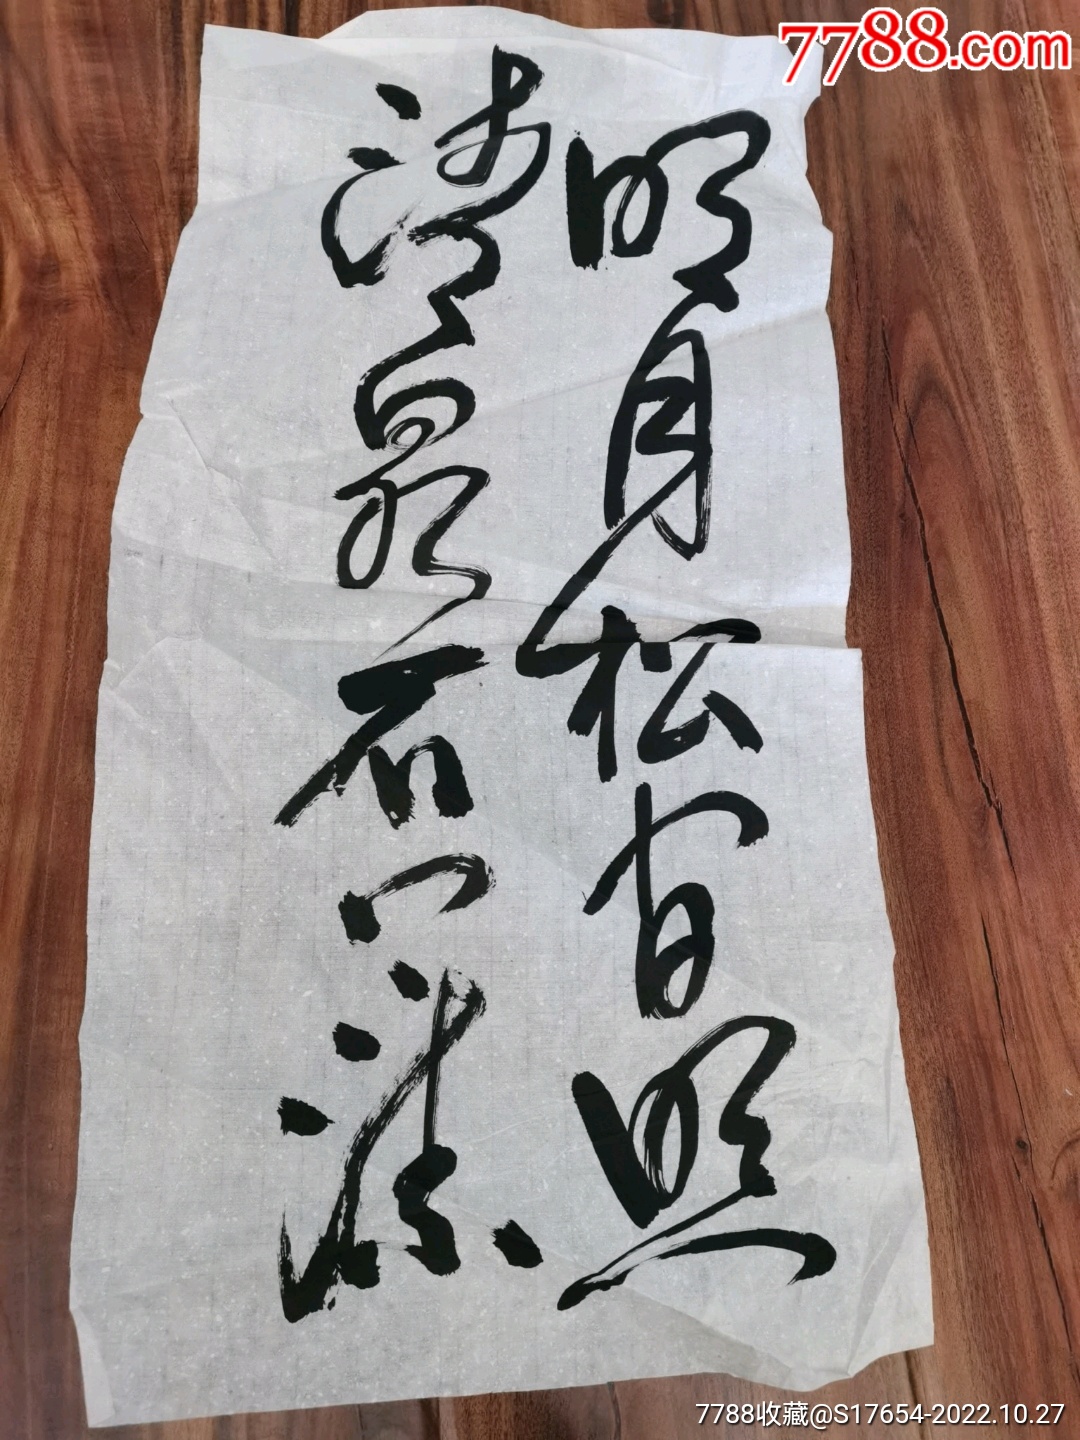 7788.com
明月松间照
清泉石上流
7788收藏@S17654-2022.10.27